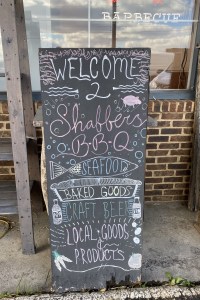 BARBECUE
WELCOME
2
Shaffers
B-B-Q
SEAFOOD
BAKED GOODS
CRAFT BEER
LOCAL-GOODS
&
PRODUCTS